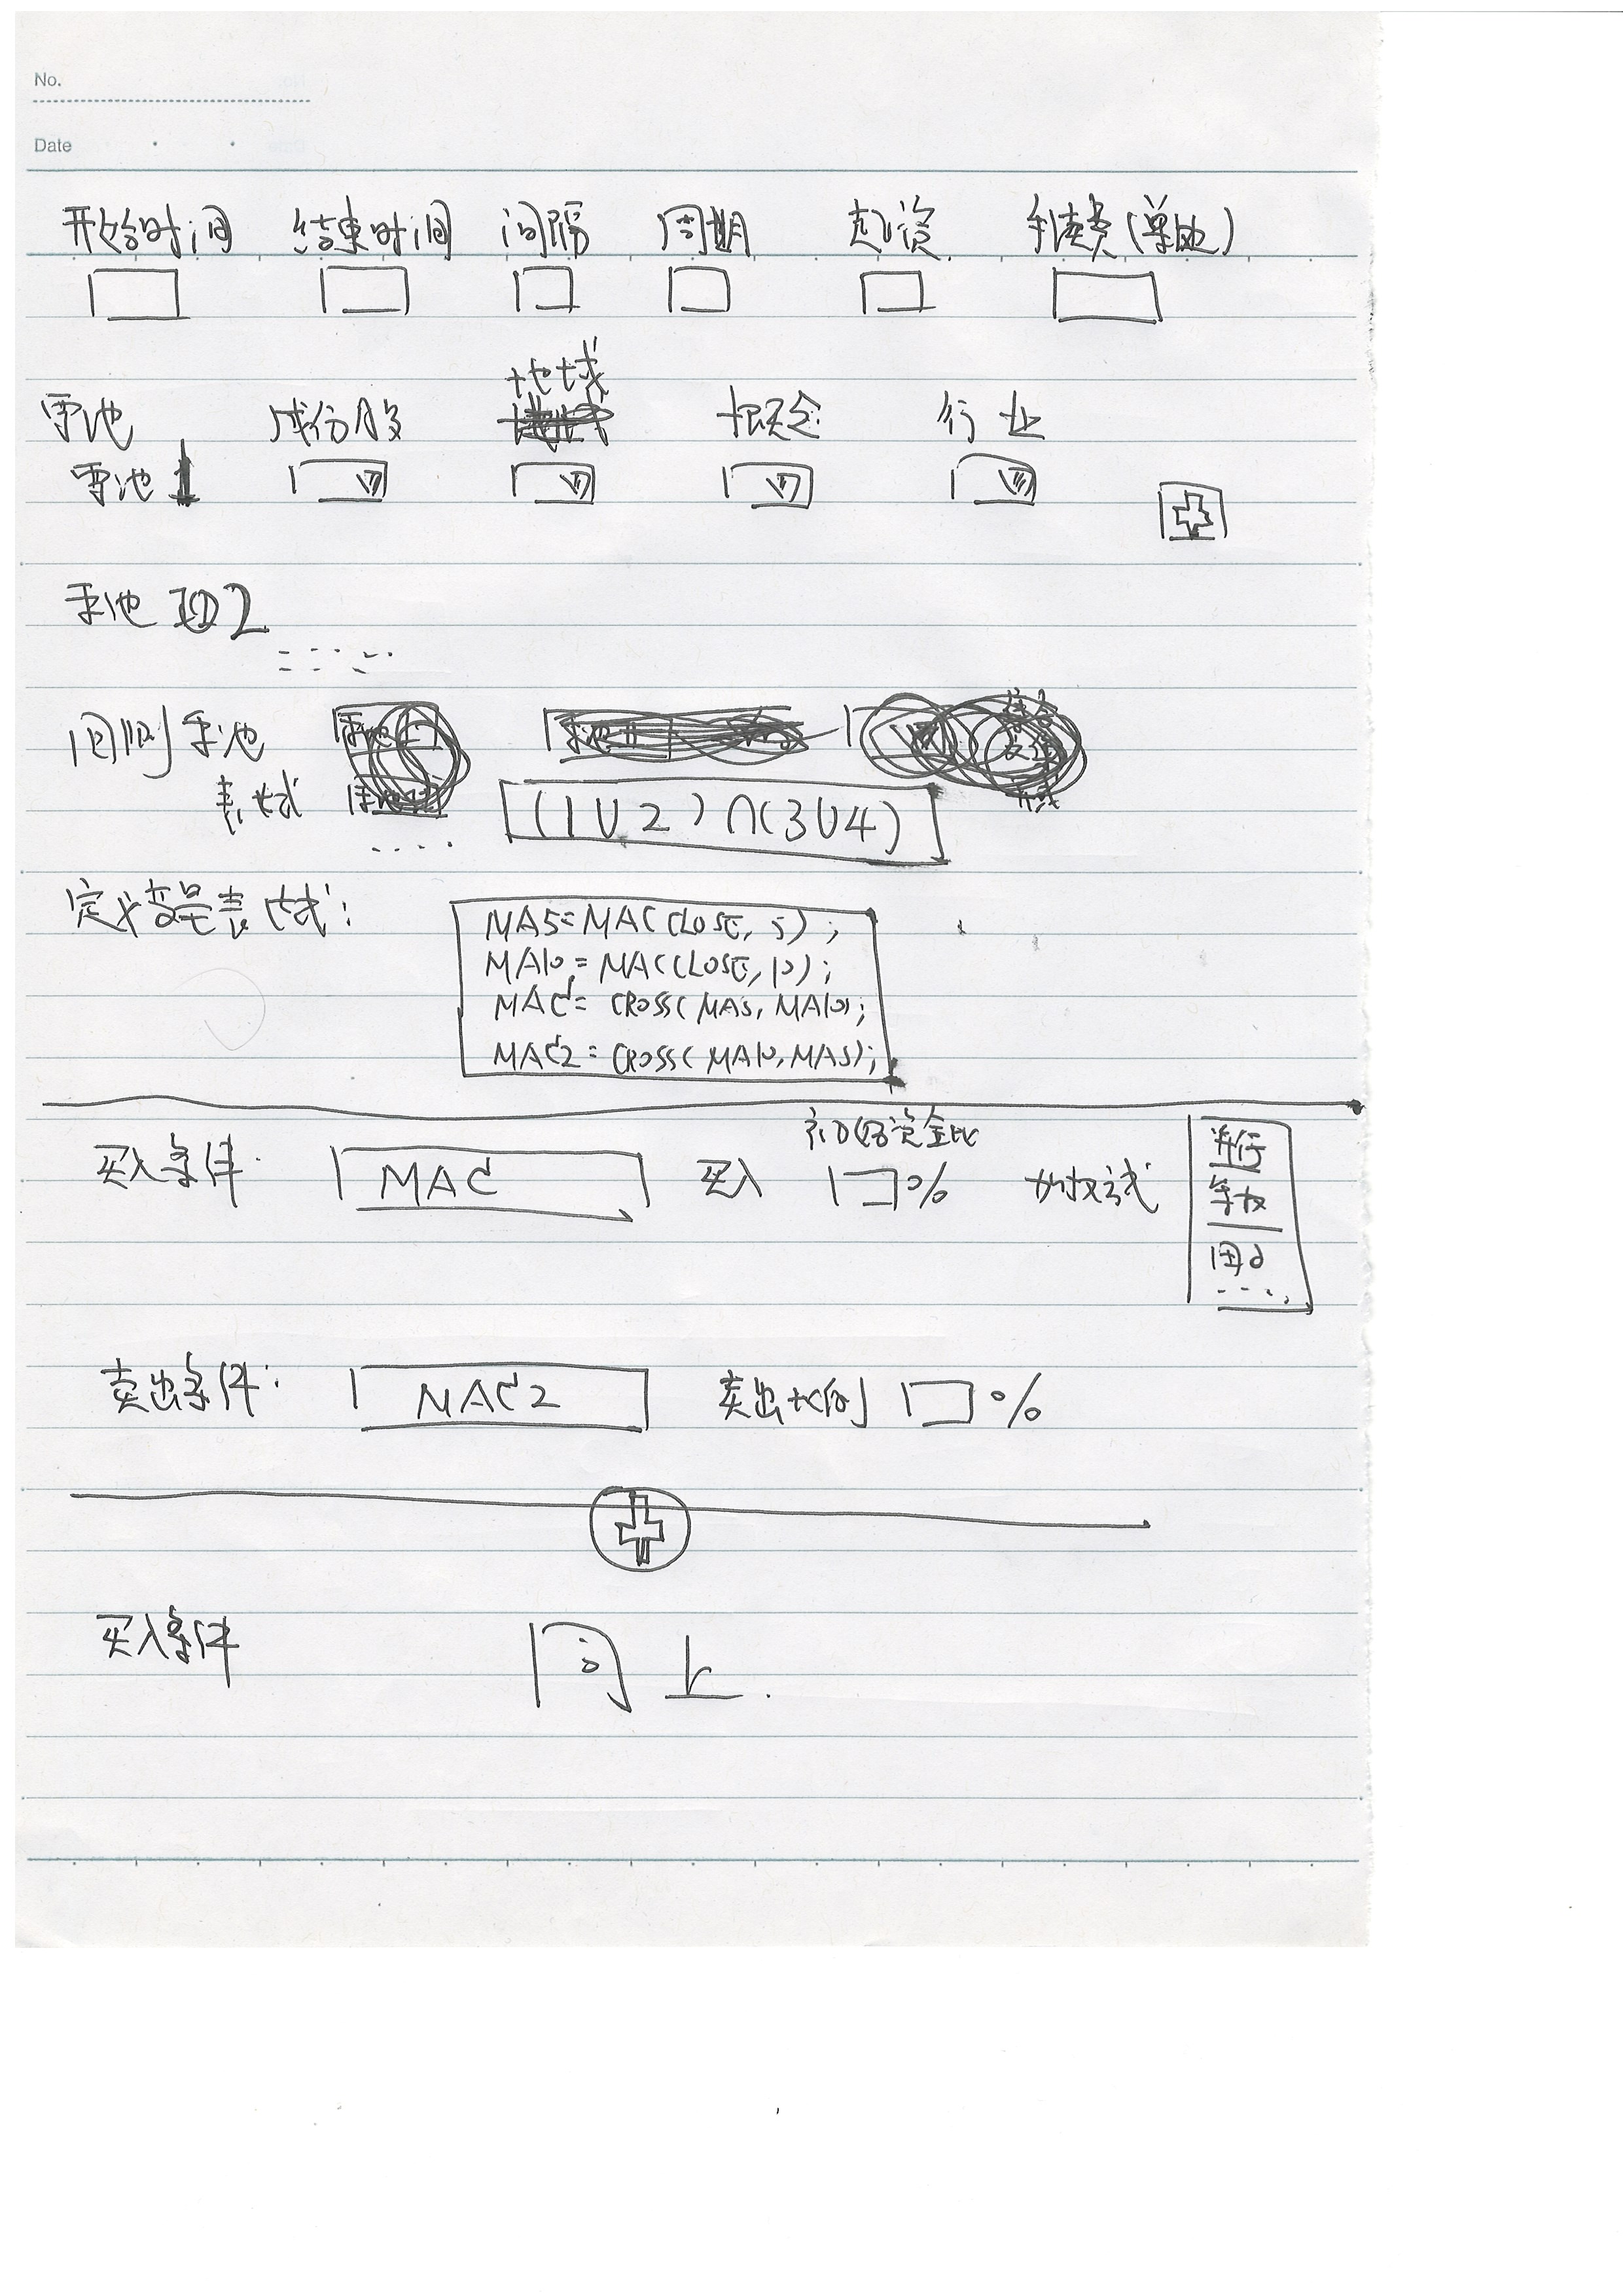 No.
Date
开始时间 结束时间 间隔 周期 起资 手续费(单边)
地域
票池 成份股 概念 行业
票池1
票池 2
回测票池
表达式 (1∪2)∩(3∪4)
定义变量表达式:
MA5=MA(CLOSE, 5);
MA10=MA(CLOSE, 10);
MAC1=CROSS(MA5, MA10);
MAC2=CROSS(MA10, MA5);
初始资金比
买入条件: MAC 买入 % 加权方式
等权
卖出条件: MAC2 卖出比例 %
买入条件 同上.